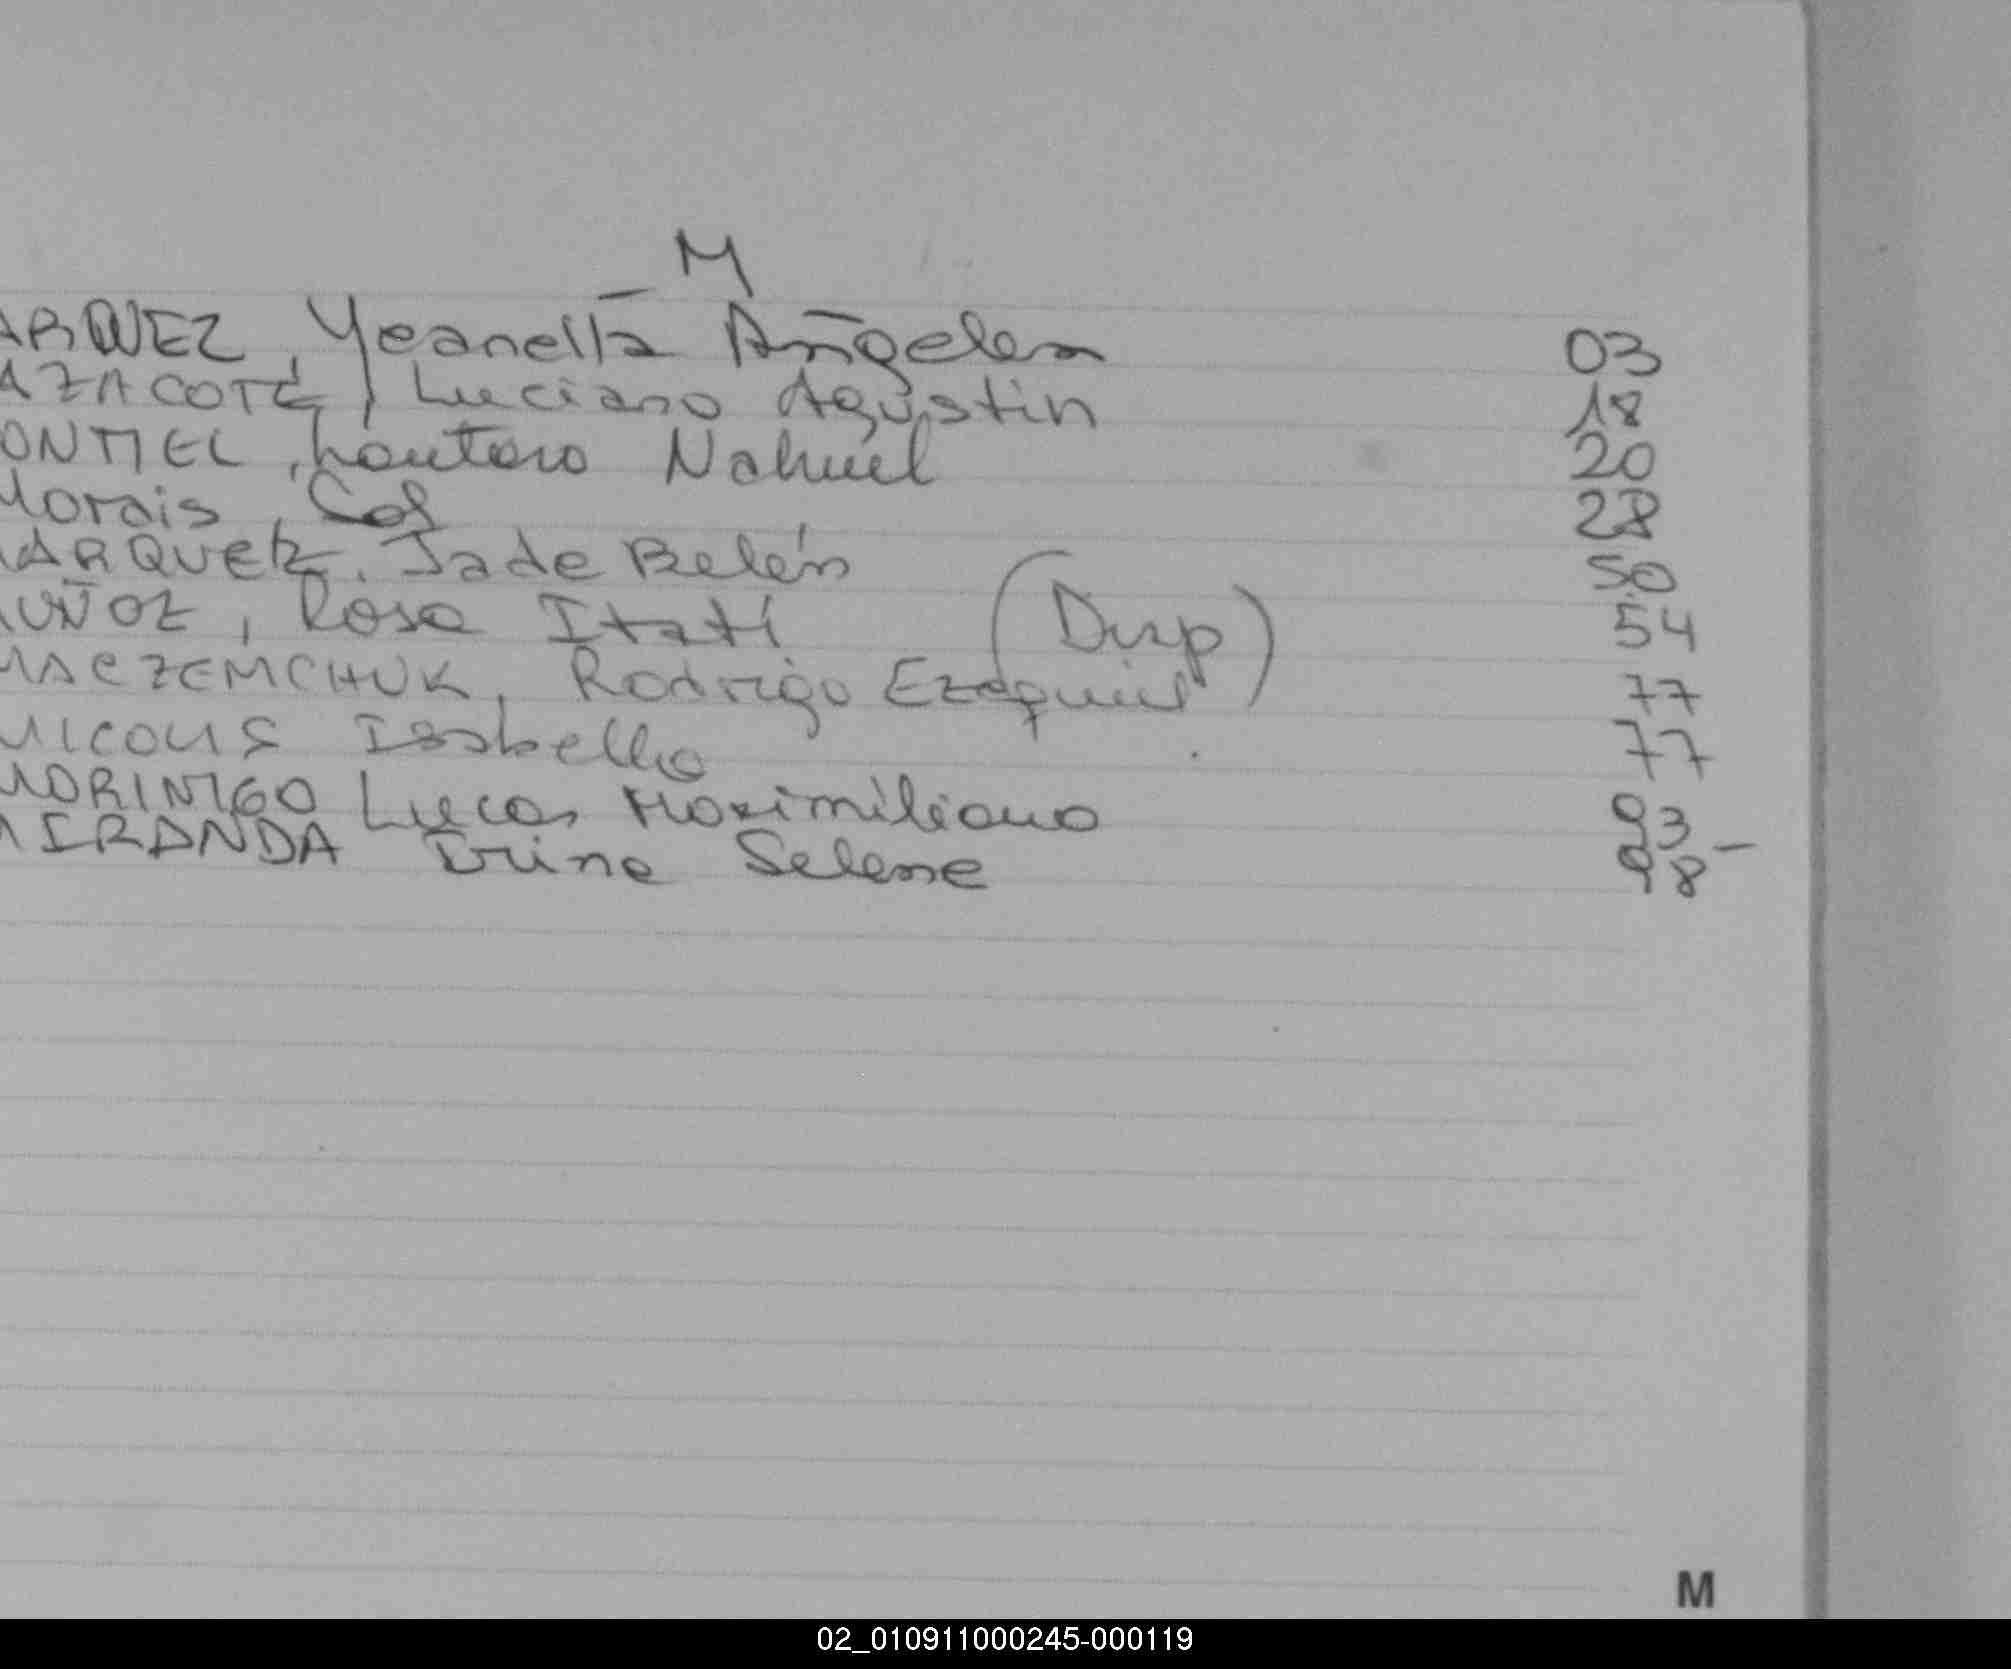 M
ARQUEZ, Yeanella Angeles 03
AZACOTE, Luciano Agustin 18
ONTIEL, Lautaro Nahuel 20
Morais, 28
MARQUEZ. Jade Belén 50
MUÑOZ, Rosa Itatí (Disp) 54
MACZEMCHUK, Rodrigo Ezequiel 77
Isabella 77
MORINIGO Lucas Maximiliano 93
MIRANDA Irina Selene 98
M
02_010911000245-000119